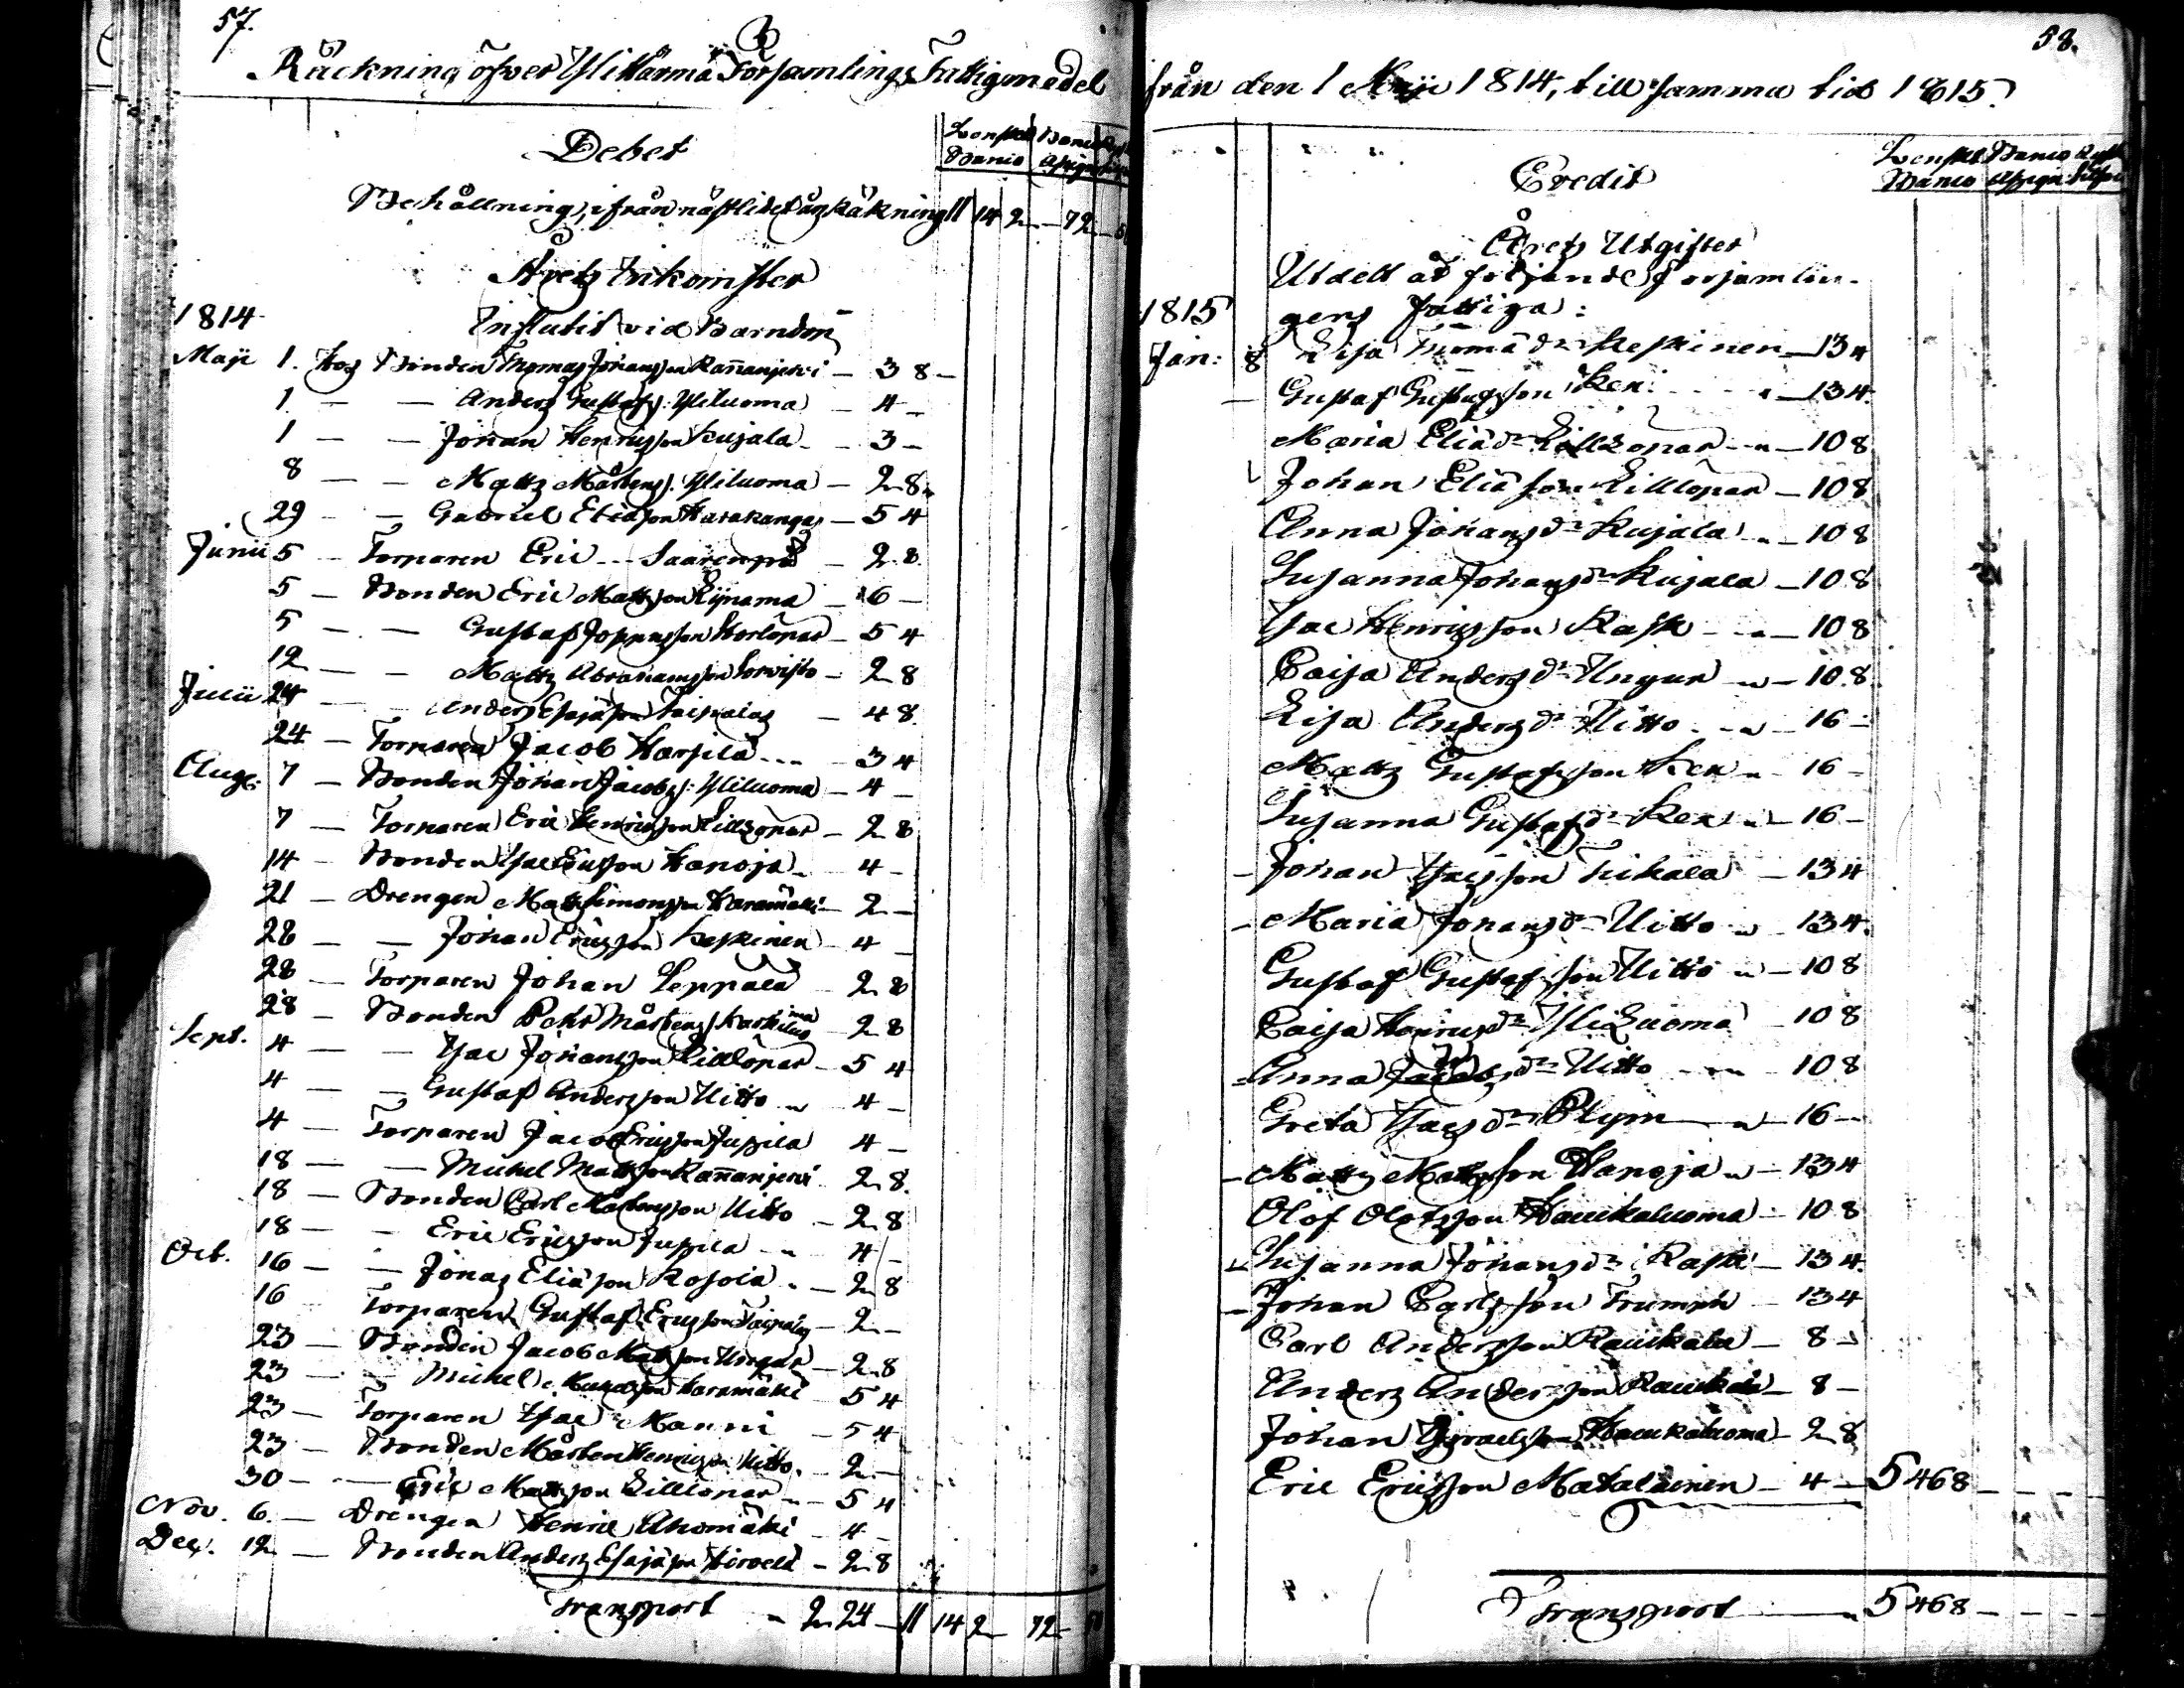 57.
Räckning öfver Ylikärmä Församlings Fattigmedel
Debet
Banco
Behållning, ifrån nästlidet års Räkning 11 14 2 — 72 —
Årets Inkomster
1814
Influtit vid Barndop
Maji 1. Hos Bonden Thomas Johansson Kananjervi — 3 8 —
1 — — Anders Gustafs: Yliluoma — 4 —
1 — — Johan Henricsson Kujala — 3 —
8 — — Matts Mårtens: Yliluoma — 2 8
29 — — Gabriel Eliäson Harakangas — 5 4
Junii 5 — Torparen Eric — Saarenpä — 2 8
5 — Bonden Eric Mattsson — 6 —
5 — — Gustaf Johansson — 5 4
12 — — Matts Abrahamsson — 2 8
Julii 24 — — Anders Esajäson Taipalus — 4 8
24 — Torparen Jacob Harjila — 3 4
Aug. 7 — Bonden Johan Jacobs: Yliluoma — 4 —
7 — Torparen Eric Henricsson Lillsopar — 2 8
14 — Bonden Isac Ericsson Hanoja — 4 —
21 — Drengen Matts Simonsson Haramäki — 2 —
28 — — Johan Ericsson Keskinen — 4 —
28 — Torparen Johan Leppälä — 2 8
28 — Bonden Petter Mårtens — 2 8
Sept. 4 — — Isac Johansson Lillsopar — 5 4
4 — — Gustaf Andersson Uitto — 4 —
4 — Torparen Jacob Ericsson Juppila 4 —
18 — — Michel Mattsson Kananjervi 2 8
18 — Bonden Carl Mårtensson Uitto — 2 8
18 — — Eric Ericsson Juppila — 4 —
Oct. 16 — — Jonas Eliäson Kojola — 2 8
16 Torparen Gustaf Ericsson Taipalus — 2 —
23 — Bonden Jacob Mattsson — 2 8
23 — — Michel Michelsson Haramäki 5 4
23 — Torparen Isac Manni — 5 4
23 — Bonden Mårten Henricsson Uitto — 2 —
30 — — Eric Mattsson Lillsopar — 5 4
Nov. 6. — Drengen Henric Ahomäki — 4 —
Dec. 12 — Bonden Anders Esajäson Hirvelä — 2 8
Transport — 2 24 — 11 14 2 — 72 —
58.
från den 1 Maji 1814, till samma tid 1815.
Credit
Banco
Årets Utgifter
Utdelt åt följande Församlin-
1815 gens fattiga:
Jan: 8 Lisa Thomäd:r Keskinen — 13 4
— Gustaf Gustafsson Ken — 13 4
Maria Eliäd:r Lillsopar — 10 8
Johan Eliäson Lillsopar — 10 8
Anna Johansd:r Kujala — 10 8
Susanna Johansd:r Kujala — 10 8
Isac Henricsson Rask — 10 8
Caisa Andersd:r Ungur — 10 8
Lisa Andersd:r Uitto — 16 —
Matts Gustafsson Ken — 16 —
Susanna Gustafsd:r Ken — 16 —
— Johan Isacsson Tikala — 13 4
— Maria Johansd:r Uitto — 13 4
Gustaf Gustafsson Uitto — 10 8
Caisa Henricsd:r Yliluoma — 10 8
Anna d:r Uitto — 10 8
Greta Isacsd:r Plym — 16 —
— Matts Mattsson Hanoja — 13 4
Olof Olofsson Haukaluoma — 10 8
Susanna Johansd:r Rask — 13 4
— Johan Carlsson Trumph — 13 4
Carl Andersson Raukala — 8 —
Anders Andersson Raukala — 8 —
Johan Israelsson Haukaluoma — 2 8
Eric Ericsson Matalainen — 4 — 5 46 8 —
Transport — 5 46 8 —